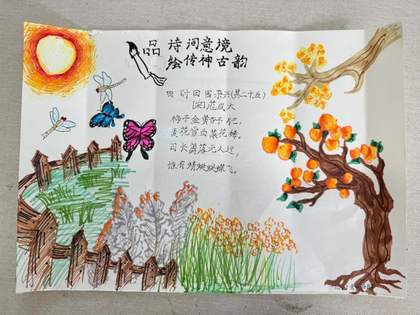 品诗词意境
绘传神古韵
四时田园杂兴(其二十五)
[宋]范成大
梅子金黄杏子肥,
麦花雪白菜花稀。
日长篱落无人过,
惟有蜻蜓蛱蝶飞。